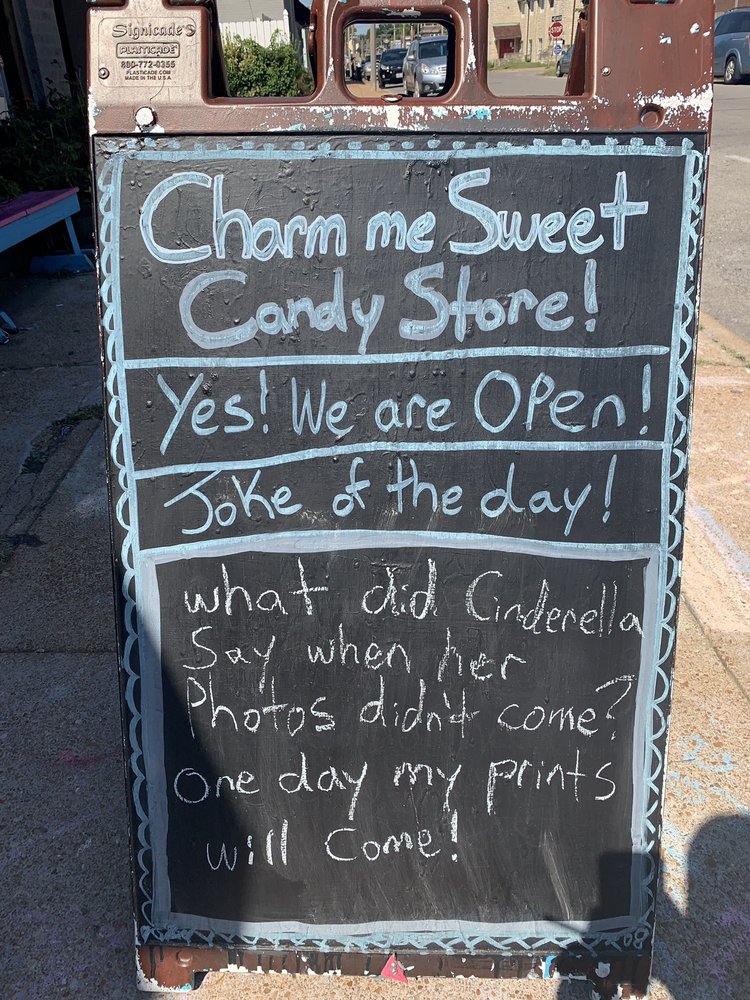 Signicade®
PLASTICADE®
800-772-0355
PLASTICADE.COM
MADE IN THE U.S.A
STOP
Charm me Sweet
Candy Store!
Yes! We are Open!
Joke of the day!
what did Cinderella
Say when her
Photos didn't come?
One day my prints
will come!